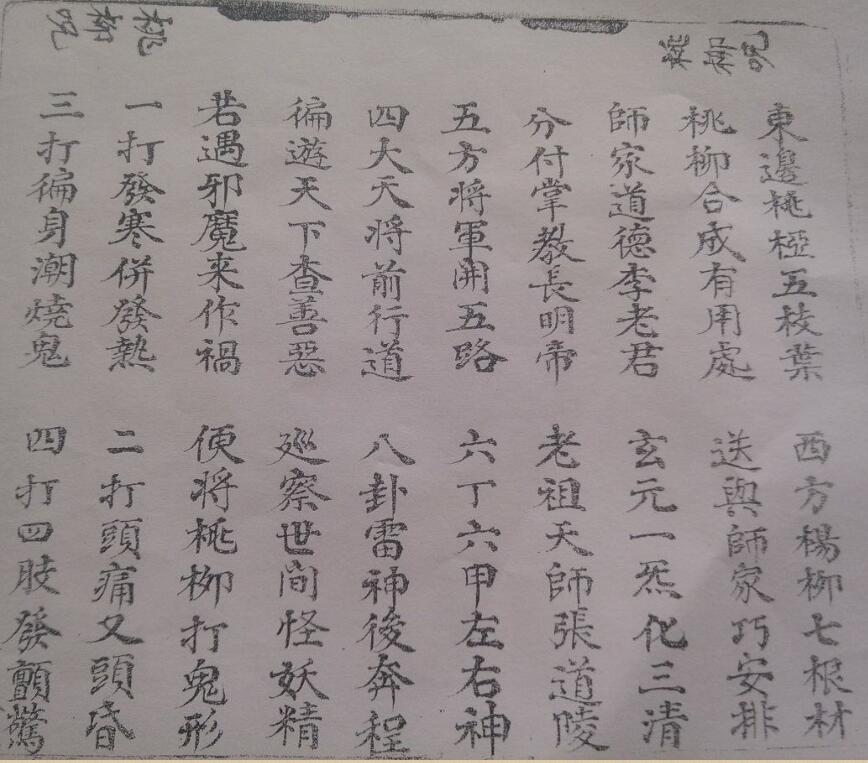 桃柳咒
東邊桃椏五枝葉
西方楊柳七根材
桃柳合成有用處
送與師家巧安排
師家道德李老君
玄元一炁化三清
分付掌教長明帝
老祖天師張道陵
五方将軍開五路
六丁六甲左右神
四大天将前行道
八卦雷神後奔程
徧遊天下查善惡
廵察世间怪妖精
若遇邪魔来作禍
便将桃柳打鬼形
一打發寒併發熱
二打頭痛又頭昏
三打徧身潮燒鬼
四打四肢發顫驚